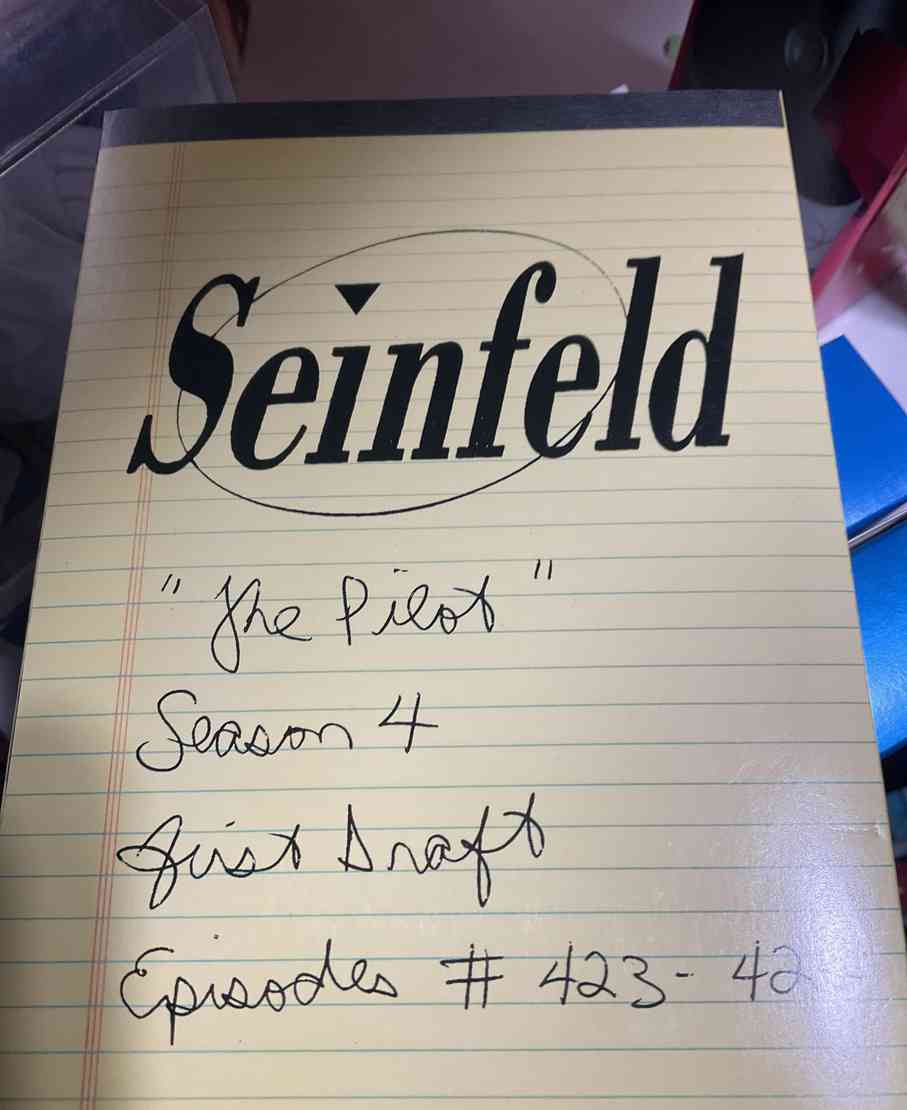 Seinfeld
"The Pilot"
Season 4
First Draft
Episodes # 423-